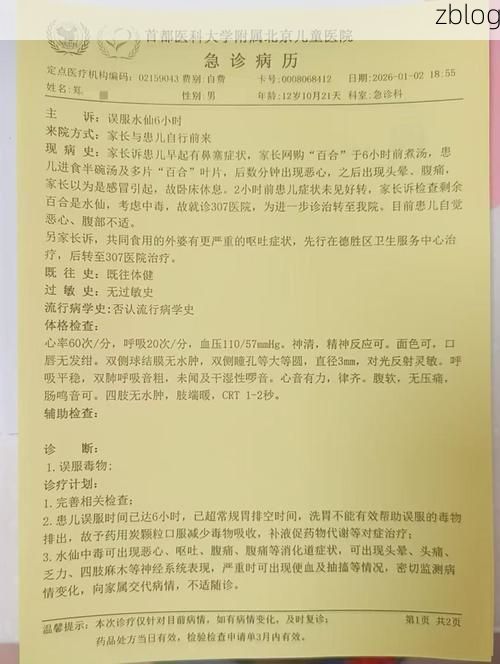 zblog
首都医科大学附属北京儿童医院
急诊病历
定点医疗机构编码：02159043 费别：自费 卡号：0008068412 日期：2026-01-02 18:55
姓名：郑 性别：男 年龄：12岁10月21天 科室：急诊科
主 诉：误服水仙6小时
来院方式：家长与患儿自行前来
现 病 史：家长诉患儿早起有鼻塞症状，家长网购“百合”于6小时前煮汤，患
儿进食半碗汤及多片“百合”叶片，后数分钟出现恶心，之后出现头晕、腹痛，
家长以为是感冒引起，故卧床休息。2小时前患儿症状未见好转，家长诉检查剩余
百合是水仙，考虑中毒，故就诊307医院，为进一步诊治转至我院。目前患儿自觉
恶心、腹部不适。
另家长诉，共同食用的外婆有更严重的呕吐症状，先行在德胜区卫生服务中心治
疗，后转至307医院治疗。
既 往 史：既往体健
过 敏 史：无过敏史
流行病学史:否认流行病学史
体格检查：
心率60次/分，呼吸20次/分，血压110/57mmHg。神清，精神反应可。面色可。口
唇无发绀。双侧球结膜无水肿，双侧瞳孔等大等圆，直径3mm，对光反射灵敏。呼
吸平稳，双肺呼吸音粗，未闻及干湿性啰音。心音有力，律齐。腹软，无压痛，
肠鸣音可。四肢无水肿，肢端暖，CRT 1-2秒。
辅助检查：
诊 断：
1.误服毒物;
诊疗计划：
1.完善相关检查；
2.患儿误服时间已达6小时，已超常规胃排空时间，洗胃不能有效帮助误服的毒物
排出，故予药用炭颗粒口服减少毒物吸收，补液促药物代谢等对症治疗；
3.水仙中毒可出现恶心、呕吐、腹痛、腹痛等消化道症状，可出现头晕、头痛、
乏力、四肢麻木等神经系统表现，严重时可出现便血及抽搐等情况，密切监测病
情变化，向家属交代病情，不适随诊。
温馨提示：本次诊疗仅针对目前病情，如有病情变化，及时复诊； 第1页 共2页
药品处方当日有效，检验检查申请单3月内有效。